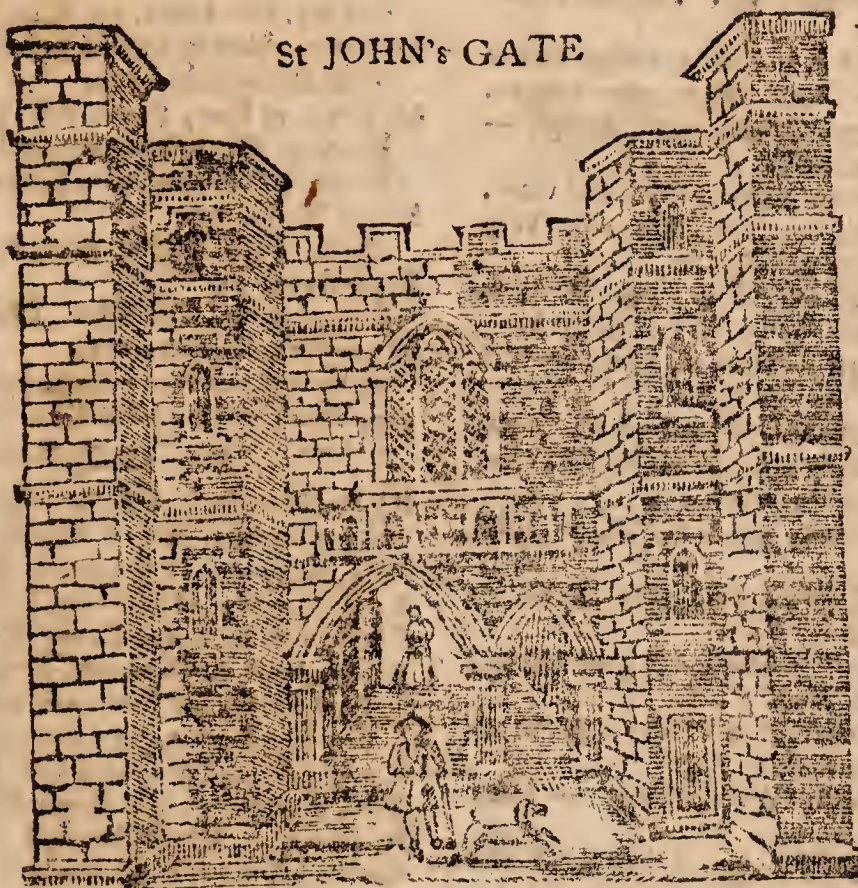 St JOHN's GATE